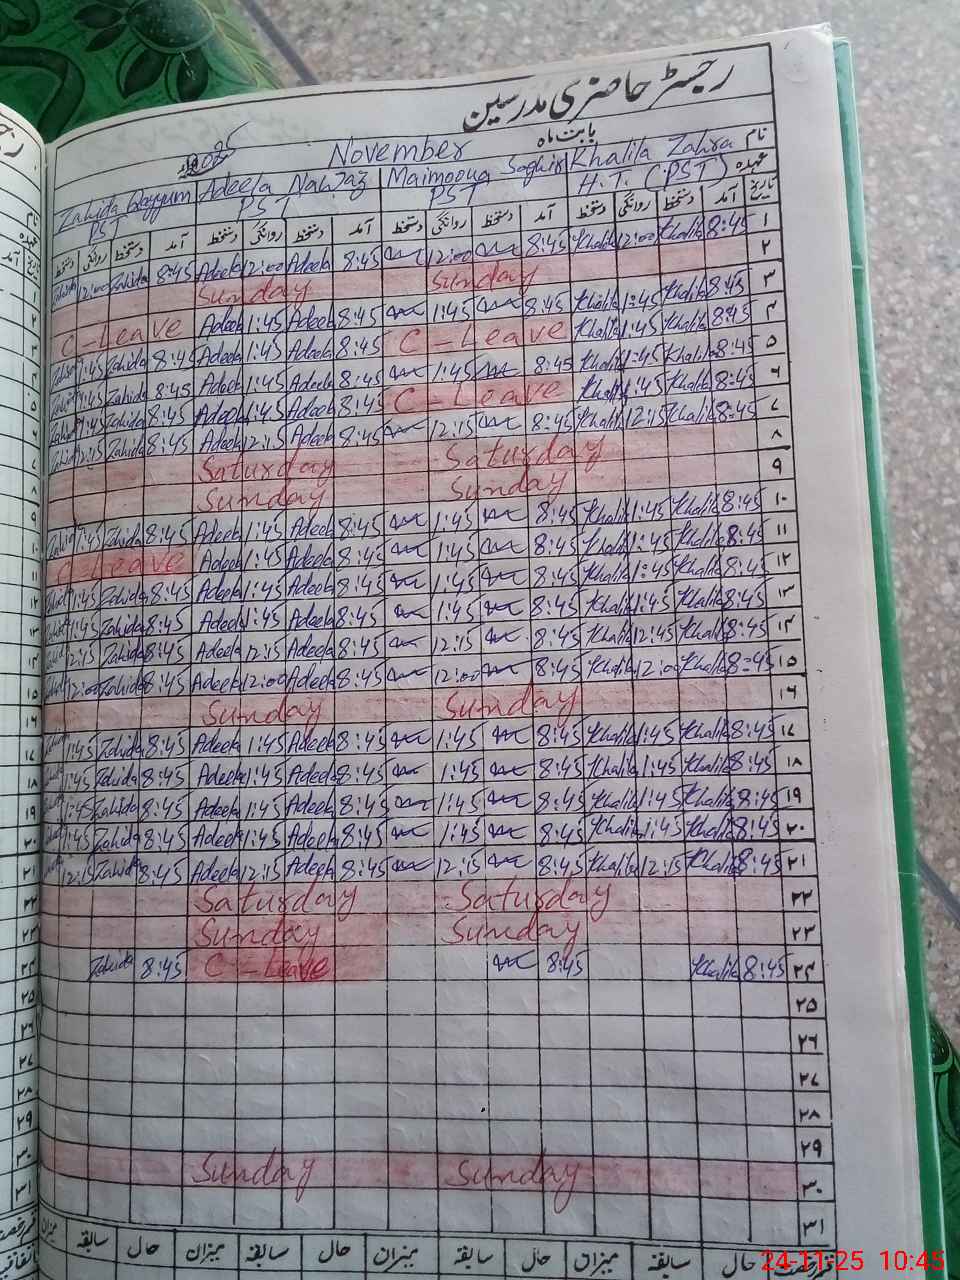 رجسٹر حاضری مدرسین
بابت ماہ November 2025
نام Khalila Zahra Maimoona Saghir Adeela Nawaz Zahida Qayyum
عہدہ H.T. (PST) PST PST PST
تاریخ آمد دستخط روانگی دستخط آمد دستخط روانگی دستخط آمد دستخط روانگی دستخط آمد دستخط روانگی دستخط
۱ 8:45 Khalila 12:00 Khalila 8:45 12:00 8:45 Adeela 12:00 Adeela 8:45 Zahida 12:00 Zahida
۲ Sunday Sunday
۳ 8:45 Khalila 1:45 Khalila 8:45 1:45 8:45 Adeela 1:45 Adeela C-Leave
۴ 8:45 Khalila 1:45 Khalila C-Leave 8:45 Adeela 1:45 Adeela 8:45 Zahida 1:45 Zahida
۵ 8:45 Khalila 1:45 Khalila 8:45 1:45 8:45 Adeela 1:45 Adeela 8:45 Zahida 1:45 Zahida
۶ 8:45 Khalila 1:45 Khalila C-Leave 8:45 Adeela 1:45 Adeela 8:45 Zahida 1:45 Zahida
۷ 8:45 Khalila 12:15 Khalila 8:45 12:15 8:45 Adeela 12:15 Adeela 8:45 Zahida 12:15 Zahida
۸ Saturday Saturday
۹ Sunday Sunday
۱۰ 8:45 Khalila 1:45 Khalila 8:45 1:45 8:45 Adeela 1:45 Adeela 8:45 Zahida 1:45 Zahida
۱۱ 8:45 Khalila 1:45 Khalila 8:45 1:45 8:45 Adeela 1:45 Adeela C-Leave
۱۲ 8:45 Khalila 1:45 Khalila 8:45 1:45 8:45 Adeela 1:45 Adeela 8:45 Zahida 1:45 Zahida
۱۳ 8:45 Khalila 1:45 Khalila 8:45 1:45 8:45 Adeela 1:45 Adeela 8:45 Zahida 1:45 Zahida
۱۴ 8:45 Khalila 12:45 Khalila 8:45 12:15 8:45 Adeela 12:15 Adeela 8:45 Zahida 12:15 Zahida
۱۵ 8:45 Khalila 12:00 Khalila 8:45 12:00 8:45 Adeela 12:00 Adeela 8:45 Zahida 12:00 Zahida
۱۶ Sunday Sunday
۱۷ 8:45 Khalila 1:45 Khalila 8:45 1:45 8:45 Adeela 1:45 Adeela 8:45 Zahida 1:45
۱۸ 8:45 Khalila 1:45 Khalila 8:45 1:45 8:45 Adeela 1:45 Adeela 8:45 Zahida 1:45
۱۹ 8:45 Khalila 1:45 Khalila 8:45 1:45 8:45 Adeela 1:45 Adeela 8:45 Zahida 1:45
۲۰ 8:45 Khalila 1:45 Khalila 8:45 1:45 8:45 Adeela 1:45 Adeela 8:45 Zahida 1:45
۲۱ 8:45 Khalila 12:15 Khalila 8:45 12:15 8:45 Adeela 12:15 Adeela 8:45 Zahida 12:15
۲۲ Saturday Saturday
۲۳ Sunday Sunday
۲۴ 8:45 Khalila 8:45 C-Leave 8:45 Zahida
۲۵
۲۶
۲۷
۲۸
۲۹
۳۰ Sunday Sunday
۳۱
حال سابقہ میزان حال سابقہ میزان حال سابقہ میزان حال سابقہ میزان
24-11-25 10:45